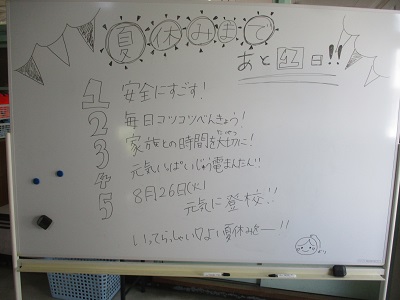 夏休みまで
あと1日!!
1 安全にすごす!
2 毎日コツコツべんきょう!
3 家族との時間を大切に!
4 元気いっぱいじゅう電まんたん!!
5 8月26日(火)
元気に登校!!
いってらっしゃい♡よい夏休みをー!!